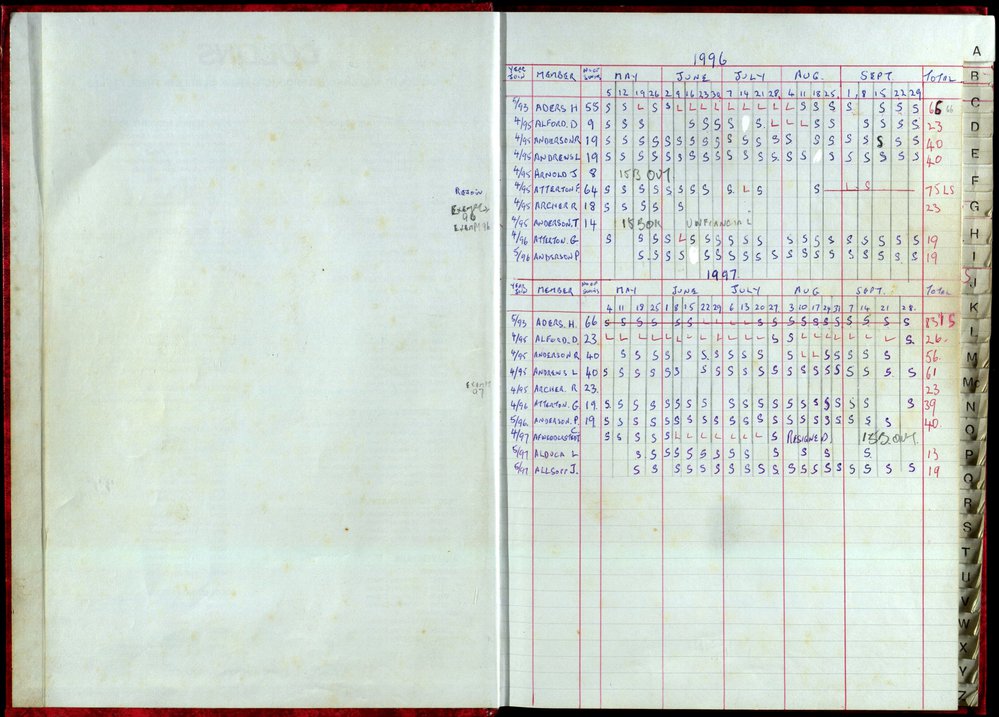 1996
YEAR JOIN MEMBER NO OF SWIMS MAY JUNE JULY AUG. SEPT. TOTAL
5 12 19 26 2 9 16 23 30 7 14 21 28 4 11 18 25 1 8 15 22 29
5/93 ADERS H 55 S S L S S L L L L L L L L L S S S S S S S 66
4/95 ALFORD. D 9 S S S S S S S L S L L L S S S S S S 23
4/95 ANDERSON R 19 S S S S S S S S S S S S S S S S S S S S 40
4/95 ANDREWS L 19 S S S S S S S S S S S S S S S S S S S S S 40
4/95 ARNOLD J 8 15B OUT.
REJOIN 4/95 ATTERTON F 64 S S S S S S S S S L S S L S 75 LS
EXEMPT 96 4/95 ARCHER R 18 S S S S S 23
EXEMPT 96 4/95 ANDERSON. T 14 UNFINANCIAL
4/96 ATTERTON. G S S S S L S S S S S S S S S S S S S S S 19
5/96 ANDERSON P S S S S S S S S S S S S S S S S S S 19
1997
YEAR JOIN MEMBER NO OF SWIMS MAY JUNE JULY AUG SEPT. TOTAL
4 11 18 25 1 8 15 22 29 6 13 20 27 3 10 17 24 31 7 14 21 28
5/93 ADERS. H. 66 S S S S S S L L L L S S S S S S S S S S S
4/95 ALFORD. D. 23 L L L L L L L L L L L L S S L L L L L L L S 26
4/95 ANDERSON R 40 S S S S S S S S S S S S L L S S S S S 56
4/95 ANDREWS L 40 S S S S S S S S S S S S S S S S S S S S S 61
EXEMPT 97 4/95 ARCHER. R 23. 23
4/96 ATTERTON. G 19. S S S S S S S S S S S S S S S S S S S S 39
5/96 ANDERSON. P. 19 S S S S S S S S S S S S S S S S S S S S S 40
4/97 S S S S S L L L L L L S RESIGNED 15B OUT.
5/97 ALDUCA L S S S S S S S S S S S S S 13
5/97 ALLSOTT J. S S S S S S S S S S S S S S S S S S S 19
A
B
C
D
E
F
G
H
I
J
K
L
M
Mc
N
O
P
Q
R
S
T
U
V
W
X
Y
Z